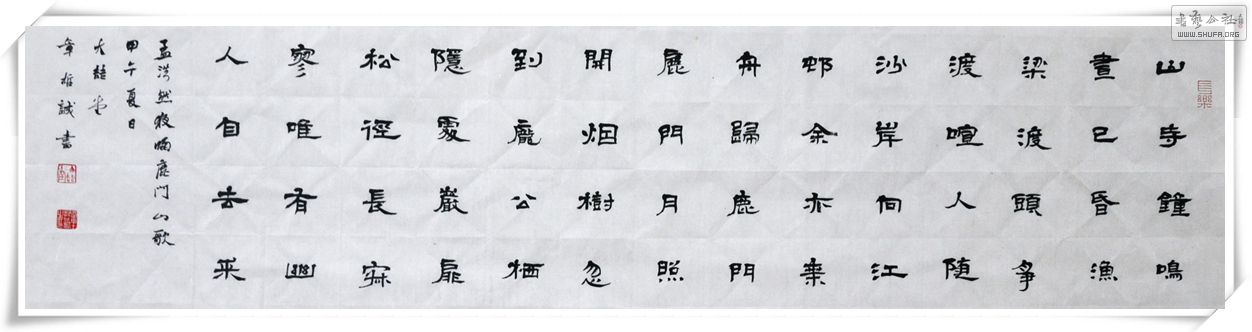 山寺鐘鳴
晝已昏漁
梁渡頭爭
渡喧人随
沙岸向江
邨余亦乗
舟歸鹿門
鹿門月照
開烟樹忽
到龐公栖
隱處巖扉
松徑長寂
寥唯有幽
人自去来
孟浩然夜歸鹿門山歌
甲午夏日
章 誠書
长樂
书艺公社
WWW.SHUFA.ORG